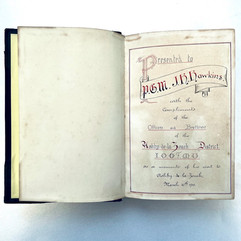 Presented to
P.G.M. J.H. Hawkins,
with the
Compliments
of the
Officers and Brethren
of the
Ashby-de-la-Zouch District
I.O.O.F.M.U.
as a memento of his visit to
Ashby de la Zouch
March